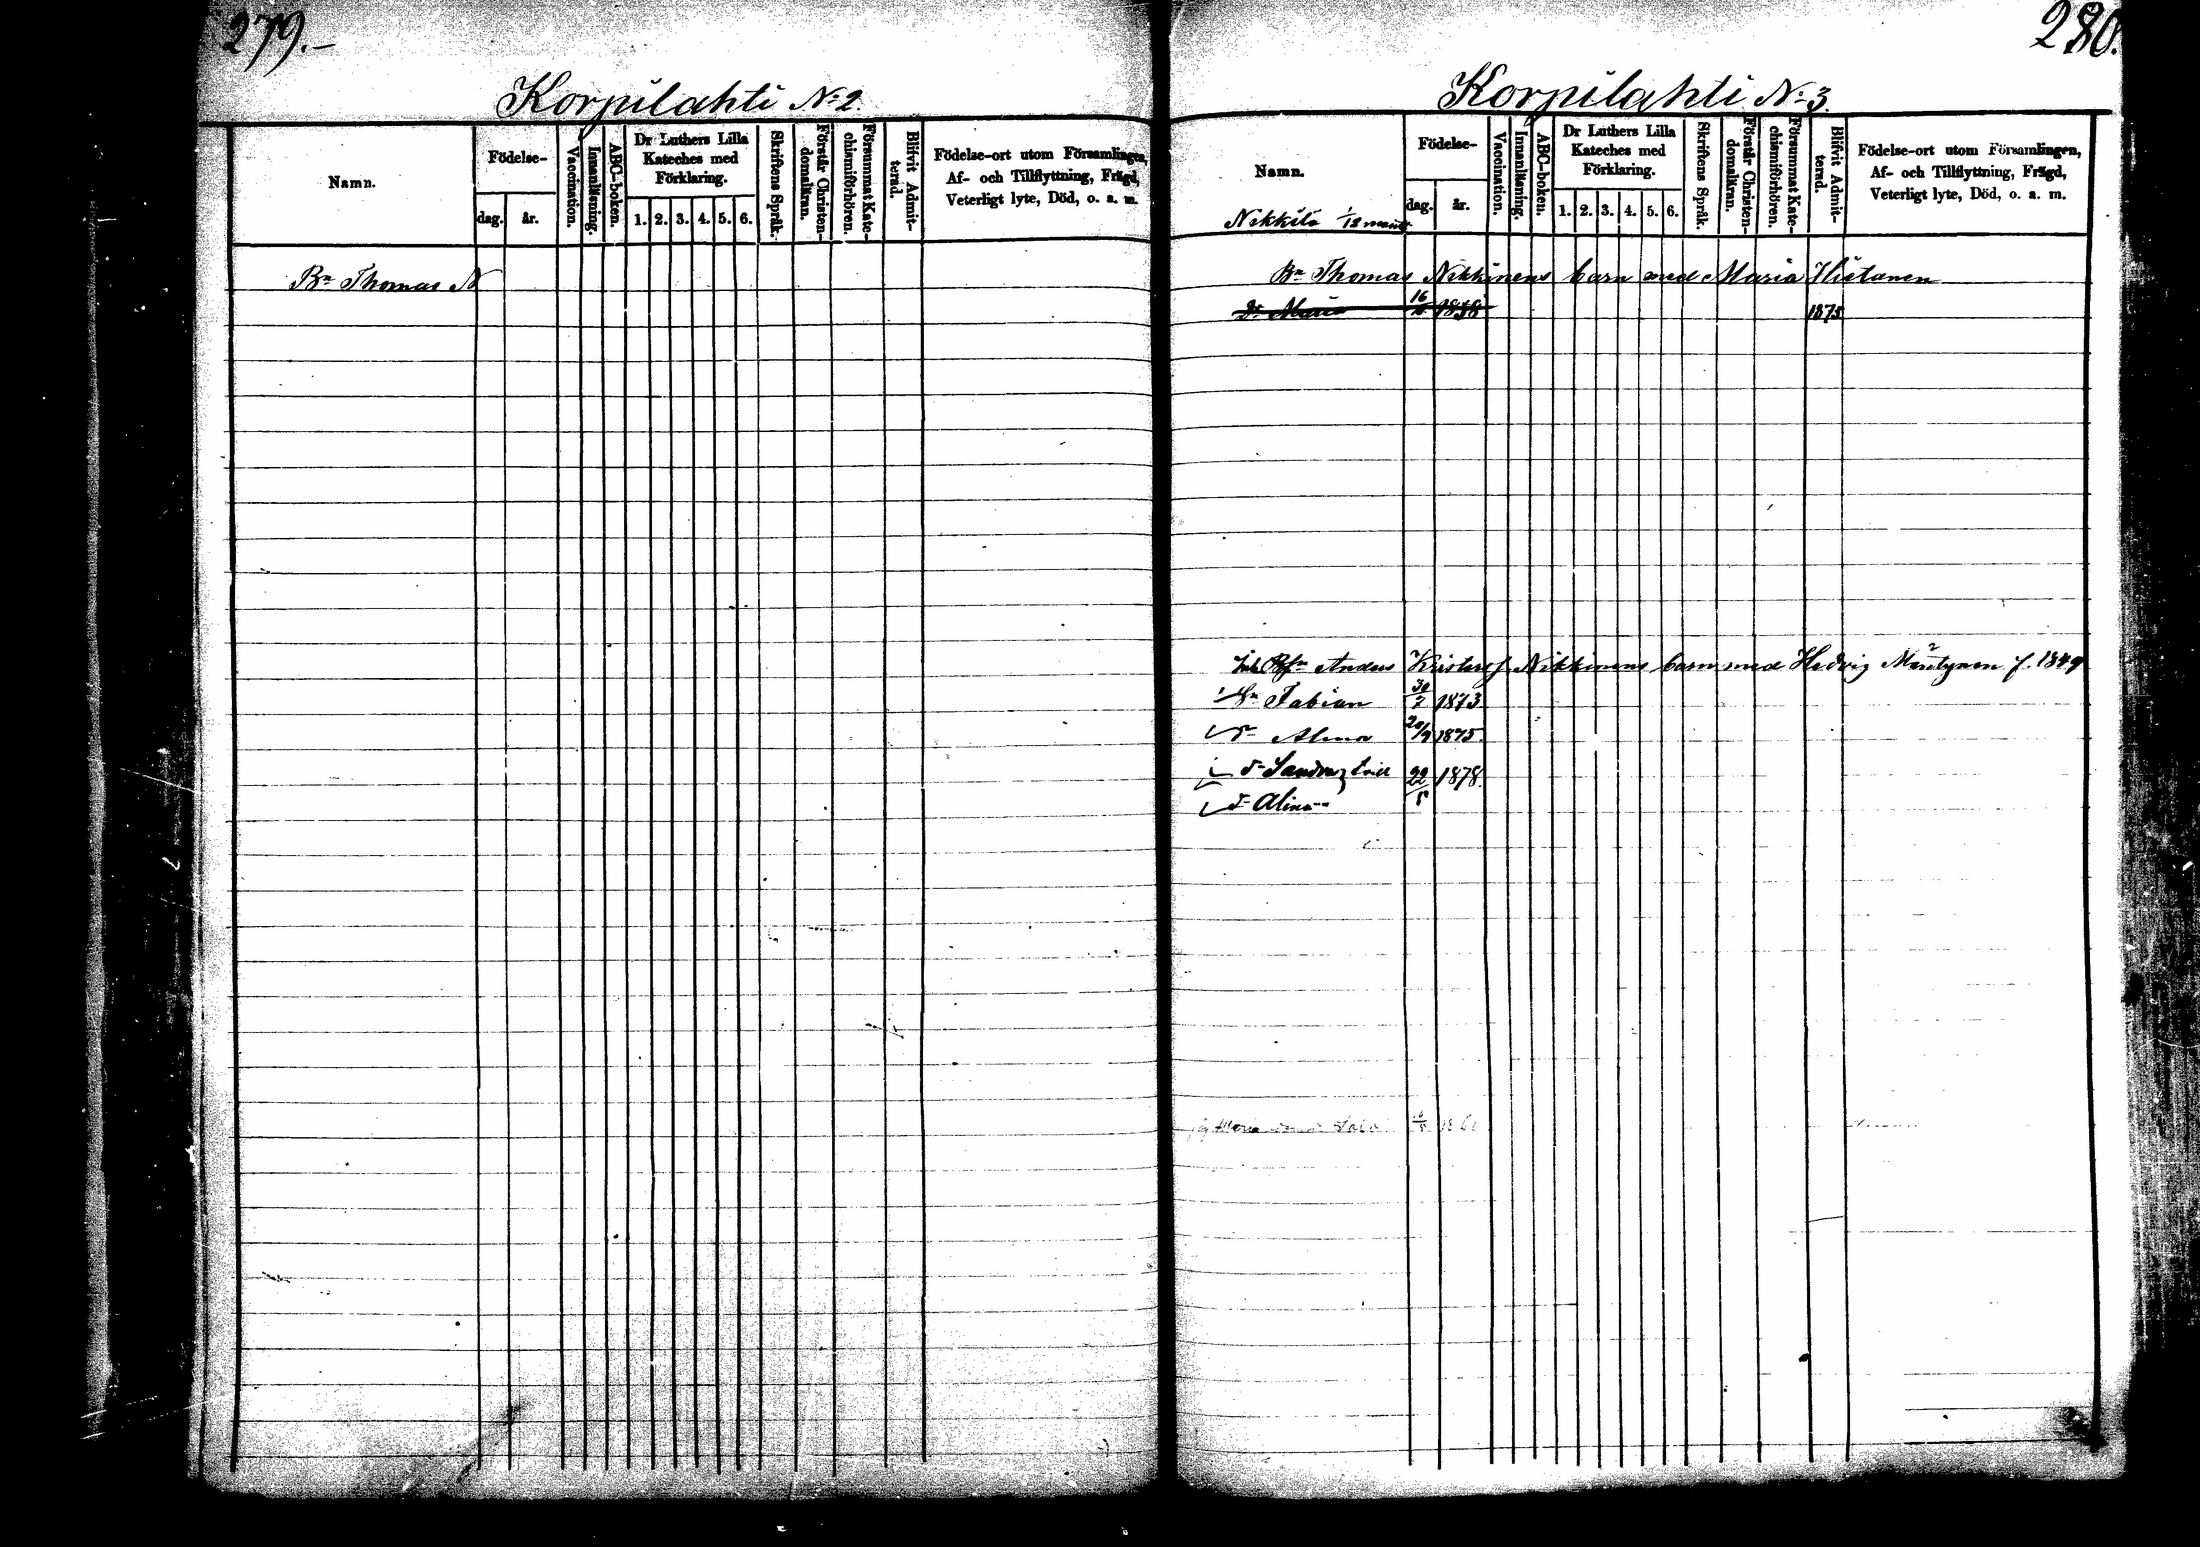 279.-
Korpilahti No 2.
Namn.
Födelse-
dag.
år.
Vaccination.
Innanläsning.
ABC-boken.
Dr Luthers Lilla
Kateches med
Förklaring.
1. 2. 3. 4. 5. 6.
Skriftens Språk.
Förstår Christen-
domsläran.
Försummat Kate-
chismiförhören.
Blifvit Admit-
terad.
Födelse-ort utom Församlingen,
Af- och Tillflyttning, Frägd,
Veterligt lyte, Död, o. a. m.
Bn Thomas N
280.
Korpilahti No 3.
Namn.
Nikkilä 1/12 mant
Födelse-
dag.
år.
Vaccination.
Innanläsning.
ABC-boken.
Dr Luthers Lilla
Kateches med
Förklaring.
1. 2. 3. 4. 5. 6.
Skriftens Språk.
Förstår Christen-
domsläran.
Försummat Kate-
chismiförhören.
Blifvit Admit-
terad.
Födelse-ort utom Församlingen,
Af- och Tillflyttning, Frägd,
Veterligt lyte, Död, o. a. m.
Bn Thomas Nikkinens barn med Maria Hietanen
Dr Maria 16 1858 1875
Anders Kristers Nikkinens barn med Hedvig f. 1849
Sn Fabian 30/7 1873
dr Alma 20/9 1875.
dr 22/5 1878.
dr Alina